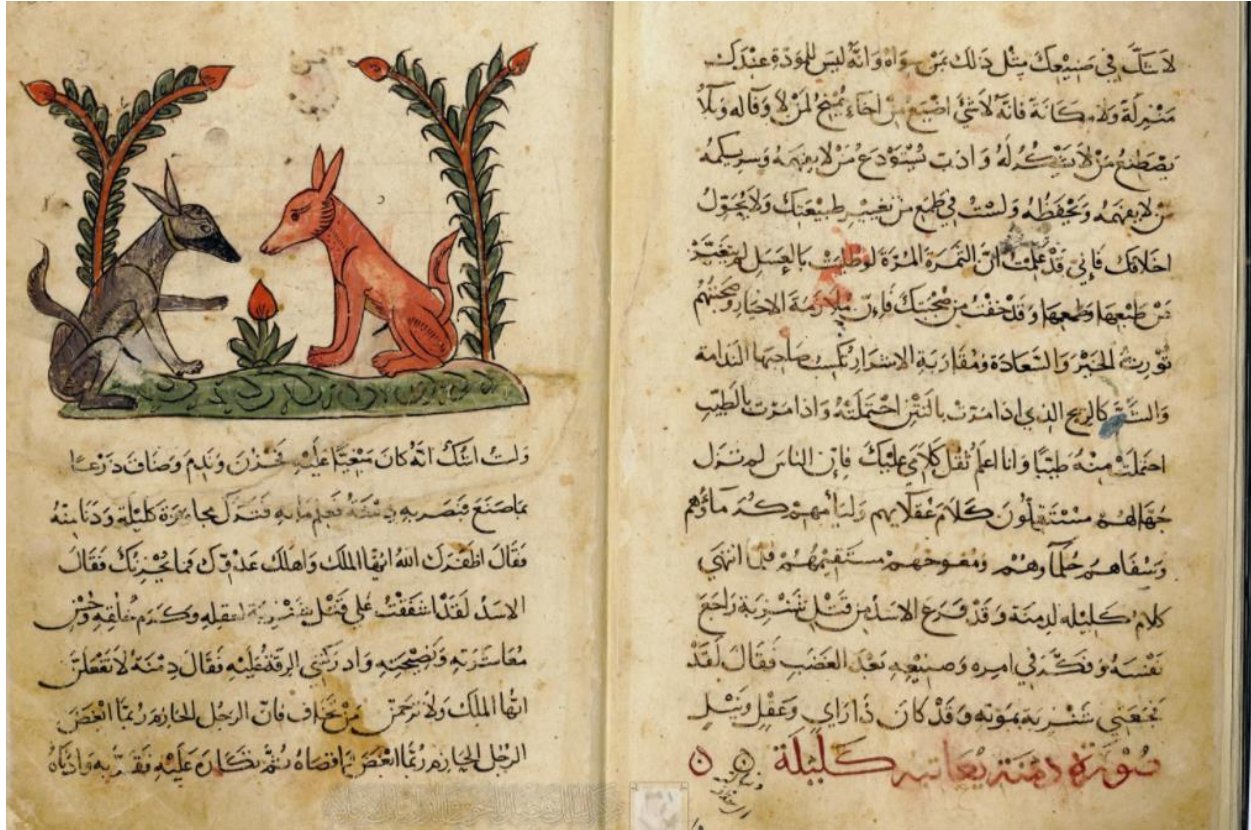 لا شك في صنيعك مثل ذلك بمن سواه وانه ليس للمودة عندك
منزلة ولا مكانة فانه لا شئ اضيع من اخاء يمنح لمن لا وفاله وبلا
يصطنع من لا يشكر له وادب يستودع من لا يفهمه وسر يكمه
من لا يفهمه ويحفظه ولست في طمع من تغيير طبيعتك ولا تحول
اخلاقك فاني قد علمت ان الثمرة المرة لو طليت بالعسل لم تتغير
من طبعها وطعمها وقد خفت من صحبتك فان ملازمة الاخيار وصحبتهم
تورث الخير والسعادة ومقاربة الاشرار تكسب صاحبها الندامة
والشر كالريح الذي اذا مرت بالنتن احتملته واذا مرت بالطيب
احتملت منه طيبا وانا اعلم ثقل كلامي عليك فان الناس لم تزل
جهالهم مستثقلون كلام عقلايهم ولئامهم كرماؤهم
وسفاهم حلماوهم ومعوجهم مستقيمهم فلما انتهى
كلام كليله لدمنة وقد فرغ الاسد من قتل شنزبة راجع
نفسه وفكر في امره وصنيعه بعد الغضب فقال لقد
فجعني شنزبة بموته وقد كان ذا راي وعقل ونبل
صورة دمنة يعاتبه كليلة
ولست اشك انه كان مبغيا عليه فحزن وندم وضاق ذرعا
بما صنع فبصر به دمنة فعلم ما به فترك محاورة كليلة ودنا منه
فقال اظفرك الله ايها الملك واهلك عدوك فما يحزنك فقال
الاسد لقد اشفقت على قتل شنزبة لعقله وكرم خلقه وحسن
معاشرته ونصحيته وادركتني الرقة عليه فقال دمنة لا تفعلن
ايها الملك ولا ترحمن من تخاف فان الرجل الحازم ربما ابغض
الرجل الحازم ربما ابغض اقصاه ثم تكاره عليه فقربه وادناه